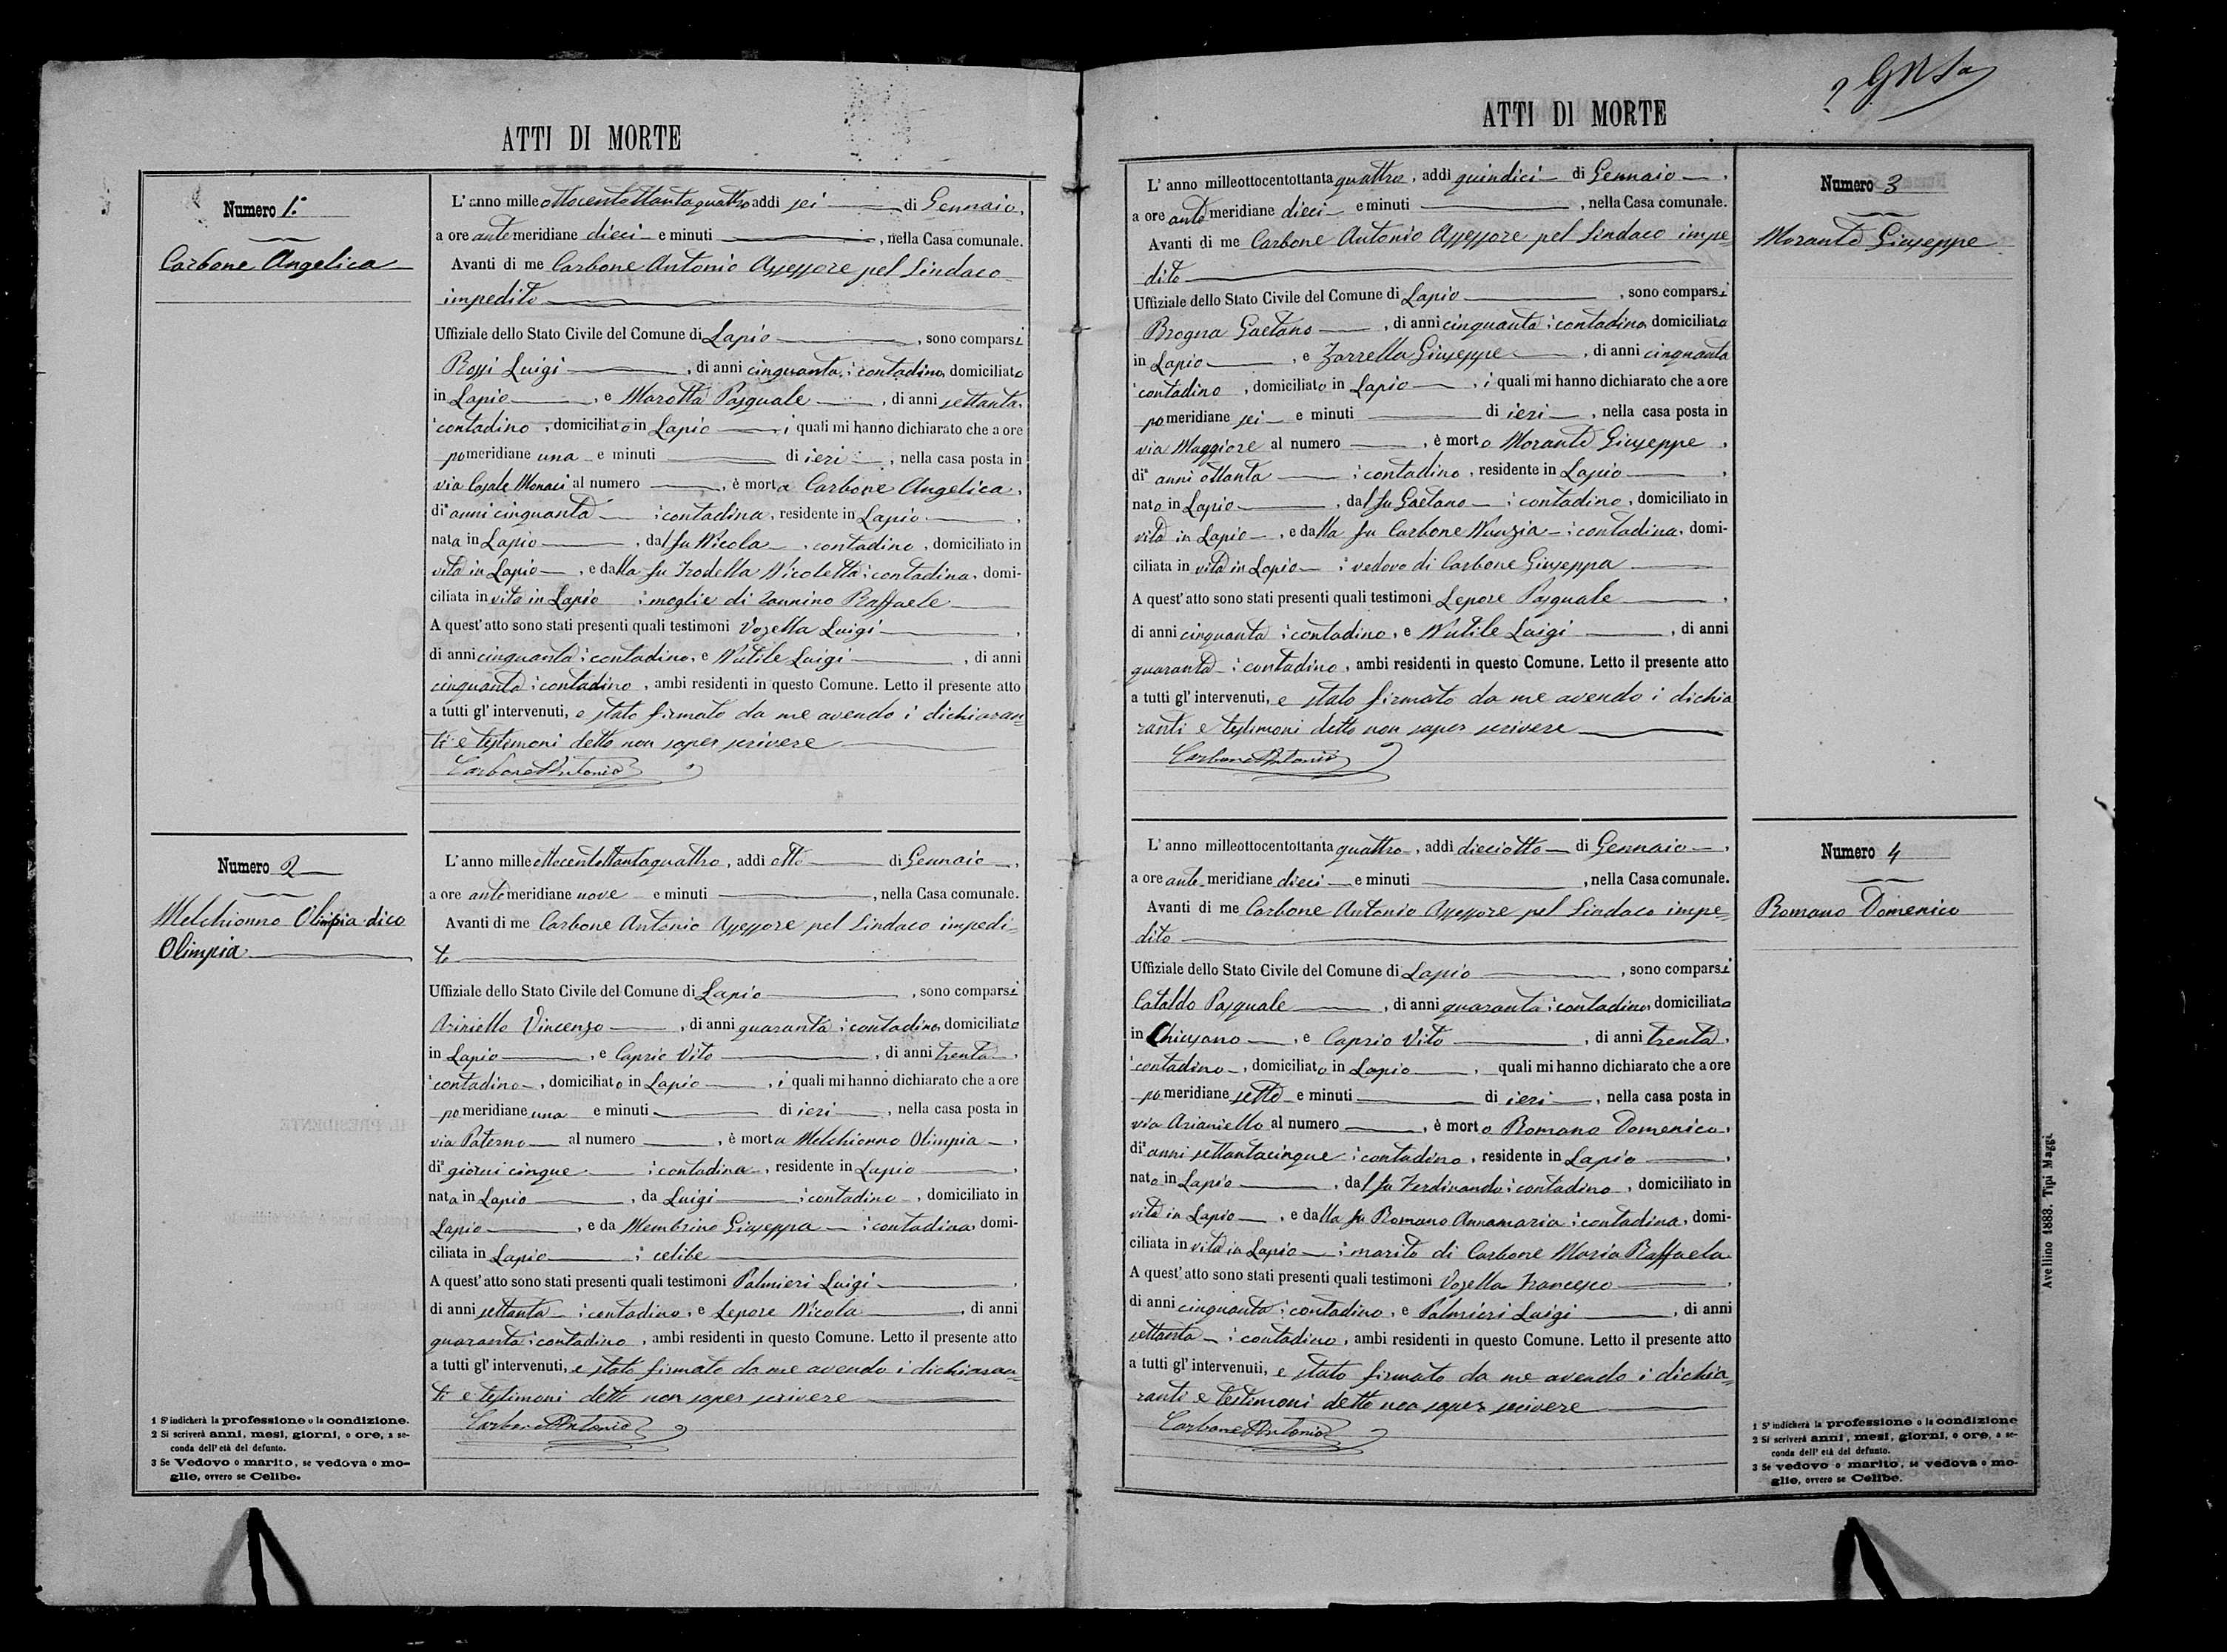 ATTI DI MORTE
Numero 1.º
Carbone Angelica
L'anno mille ottocentottantaquattro addì sei di Gennaio,
a ore antemeridiane dieci e minuti , nella Casa comunale.
Avanti di me Carbone Antonio Assessore pel Sindaco
impedito
Uffiziale dello Stato Civile del Comune di Lapio , sono comparsi
Rossi Luigi , di anni cinquanta, contadino, domiciliato
in Lapio , e Marotta Pasquale , di anni settanta,
contadino , domiciliato in Lapio , i quali mi hanno dichiarato che a ore
pomeridiane una e minuti di ieri , nella casa posta in
via Casale Monaci al numero , è morta Carbone Angelica ,
di anni cinquanta , contadina , residente in Lapio ,
nata in Lapio , dal fu Nicola , contadino , domiciliato in
vita in Lapio , e dalla fu Trodella Nicoletta , contadina , domi-
ciliata in vita in Lapio , moglie di Zannino Raffaele
A quest'atto sono stati presenti quali testimoni Vozella Luigi ,
di anni cinquanta , contadino , e Nutile Luigi , di anni
cinquanta , contadino , ambi residenti in questo Comune. Letto il presente atto
a tutti gl'intervenuti, e stato firmato da me avendo i dichiaran=
ti e testimoni detto non saper scrivere
Carbone Antonio
Numero 2
Melchionno Olimpia dico
Olimpia
L'anno mille ottocentottantaquattro , addì otto di Gennaio ,
a ore antemeridiane nove e minuti , nella Casa comunale.
Avanti di me Carbone Antonio Assessore pel Sindaco impedi=
to
Uffiziale dello Stato Civile del Comune di Lapio , sono comparsi
Aririello Vincenzo , di anni quaranta , contadino, domiciliato
in Lapio , e Caprio Vito , di anni trenta ,
contadino , domiciliato in Lapio , i quali mi hanno dichiarato che a ore
pomeridiane una e minuti di ieri , nella casa posta in
via Paterno al numero , è morta Melchionno Olimpia ,
di giorni cinque , contadina , residente in Lapio ,
nata in Lapio , da Luigi , contadino , domiciliato in
Lapio , e da Membrino Giuseppa , contadina, domi-
ciliata in Lapio , celibe
A quest'atto sono stati presenti quali testimoni Palmieri Luigi ,
di anni settanta , contadino , e Lepore Nicola , di anni
quaranta , contadino , ambi residenti in questo Comune. Letto il presente atto
a tutti gl'intervenuti, e stato firmato da me avendo i dichiaran=
ti e testimoni detto non saper scrivere
Carbone Antonio
1 S'indicherà la professione o la condizione.
2 Si scriverà anni, mesi, giorni, o ore, a se-
conda dell'età del defunto.
3 Se Vedovo o marito, se vedova o mo-
glie, ovvero se Celibe.
ATTI DI MORTE
L'anno milleottocentottanta quattro , addì quindici di Gennaio ,
a ore antemeridiane dieci e minuti , nella Casa comunale.
Avanti di me Carbone Antonio Assessore pel Sindaco impe=
dito
Uffiziale dello Stato Civile del Comune di Lapio , sono comparsi
Brogna Gaetano , di anni cinquanta , contadino, domiciliato
in Lapio , e Zarrella Giuseppe , di anni cinquanta
contadino , domiciliato in Lapio , i quali mi hanno dichiarato che a ore
pomeridiane sei e minuti di ieri , nella casa posta in
via Maggiore al numero , è morto Morante Giuseppe ,
di anni ottanta , contadino , residente in Lapio ,
nato in Lapio , dal fu Gaetano , contadino , domiciliato in
vita in Lapio , e dalla fu Carbone Nunzia , contadina, domi-
ciliata in vita in Lapio , vedovo di Carbone Giuseppa
A quest'atto sono stati presenti quali testimoni Lepore Pasquale ,
di anni cinquanta , contadino , e Nutile Luigi , di anni
quaranta , contadino , ambi residenti in questo Comune. Letto il presente atto
a tutti gl'intervenuti, e stato firmato da me avendo i dichia
ranti e testimoni detto non saper scrivere
Carbone Antonio
Numero 3
Morante Giuseppe
L'anno milleottocentottanta quattro , addì dieciotto di Gennaio ,
a ore antemeridiane dieci e minuti , nella Casa comunale.
Avanti di me Carbone Antonio Assessore pel Sindaco impe=
dito
Uffiziale dello Stato Civile del Comune di Lapio , sono comparsi
Cataldo Pasquale , di anni quaranta , contadino, domiciliato
in Chiusano , e Caprio Vito , di anni trenta ,
contadino , domiciliato in Lapio , quali mi hanno dichiarato che a ore
pomeridiane sette e minuti di ieri , nella casa posta in
via Arianiello al numero , è morto Romano Domenico ,
di anni settantacinque , contadino , residente in Lapio ,
nato in Lapio , dal fu Ferdinando , contadino , domiciliato in
vita in Lapio , e dalla fu Romano Annamaria , contadina , domi-
ciliata in vita in Lapio , marito di Carbone Maria Raffaela
A quest'atto sono stati presenti quali testimoni Vozella Francesco ,
di anni cinquanta , contadino , e Palmieri Luigi , di anni
settanta , contadino , ambi residenti in questo Comune. Letto il presente atto
a tutti gl'intervenuti, e stato firmato da me avendo i dichia=
ranti e testimoni detto non saper scrivere
Carbone Antonio
Numero 4
Romano Domenico
1 S'indicherà la professione o la condizione
2 Si scriverà anni, mesi, giorni, o ore, a se-
conda dell'età del defunto.
3 Se vedovo o marito, se vedova o mo-
glie, ovvero se Celibe.
Avellino 1883. Tipi Maggi.